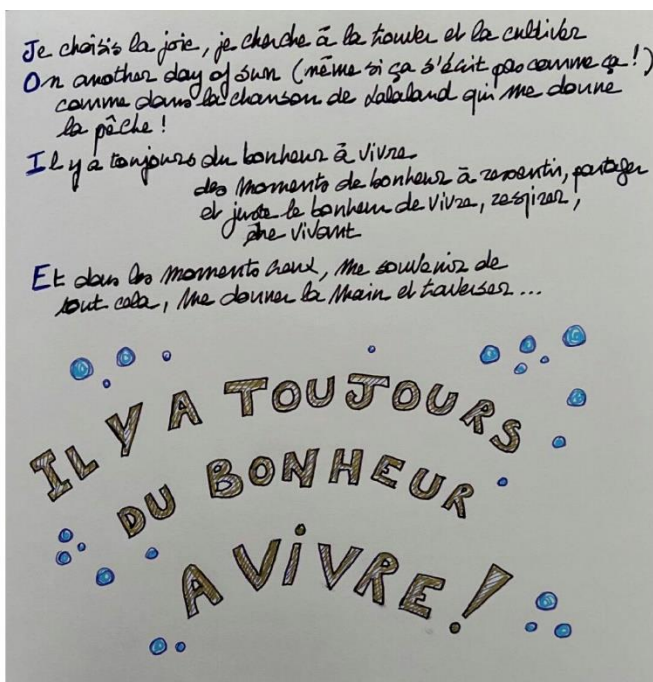 Je choisis la joie, je cherche à la trouver et la cultiver
On another day of sun (même si ça s'écrit pas comme ça !)
comme dans la chanson de Lalaland qui me donne
la pêche !
Il y a toujours du bonheur à vivre
des moments de bonheur à ressentir, partager
et juste le bonheur de vivre, respirer,
être vivant
Et dans les moments creux, me souvenir de
tout cela, me donner la main et traverser...
IL Y A TOUJOURS
DU BONHEUR
A VIVRE !